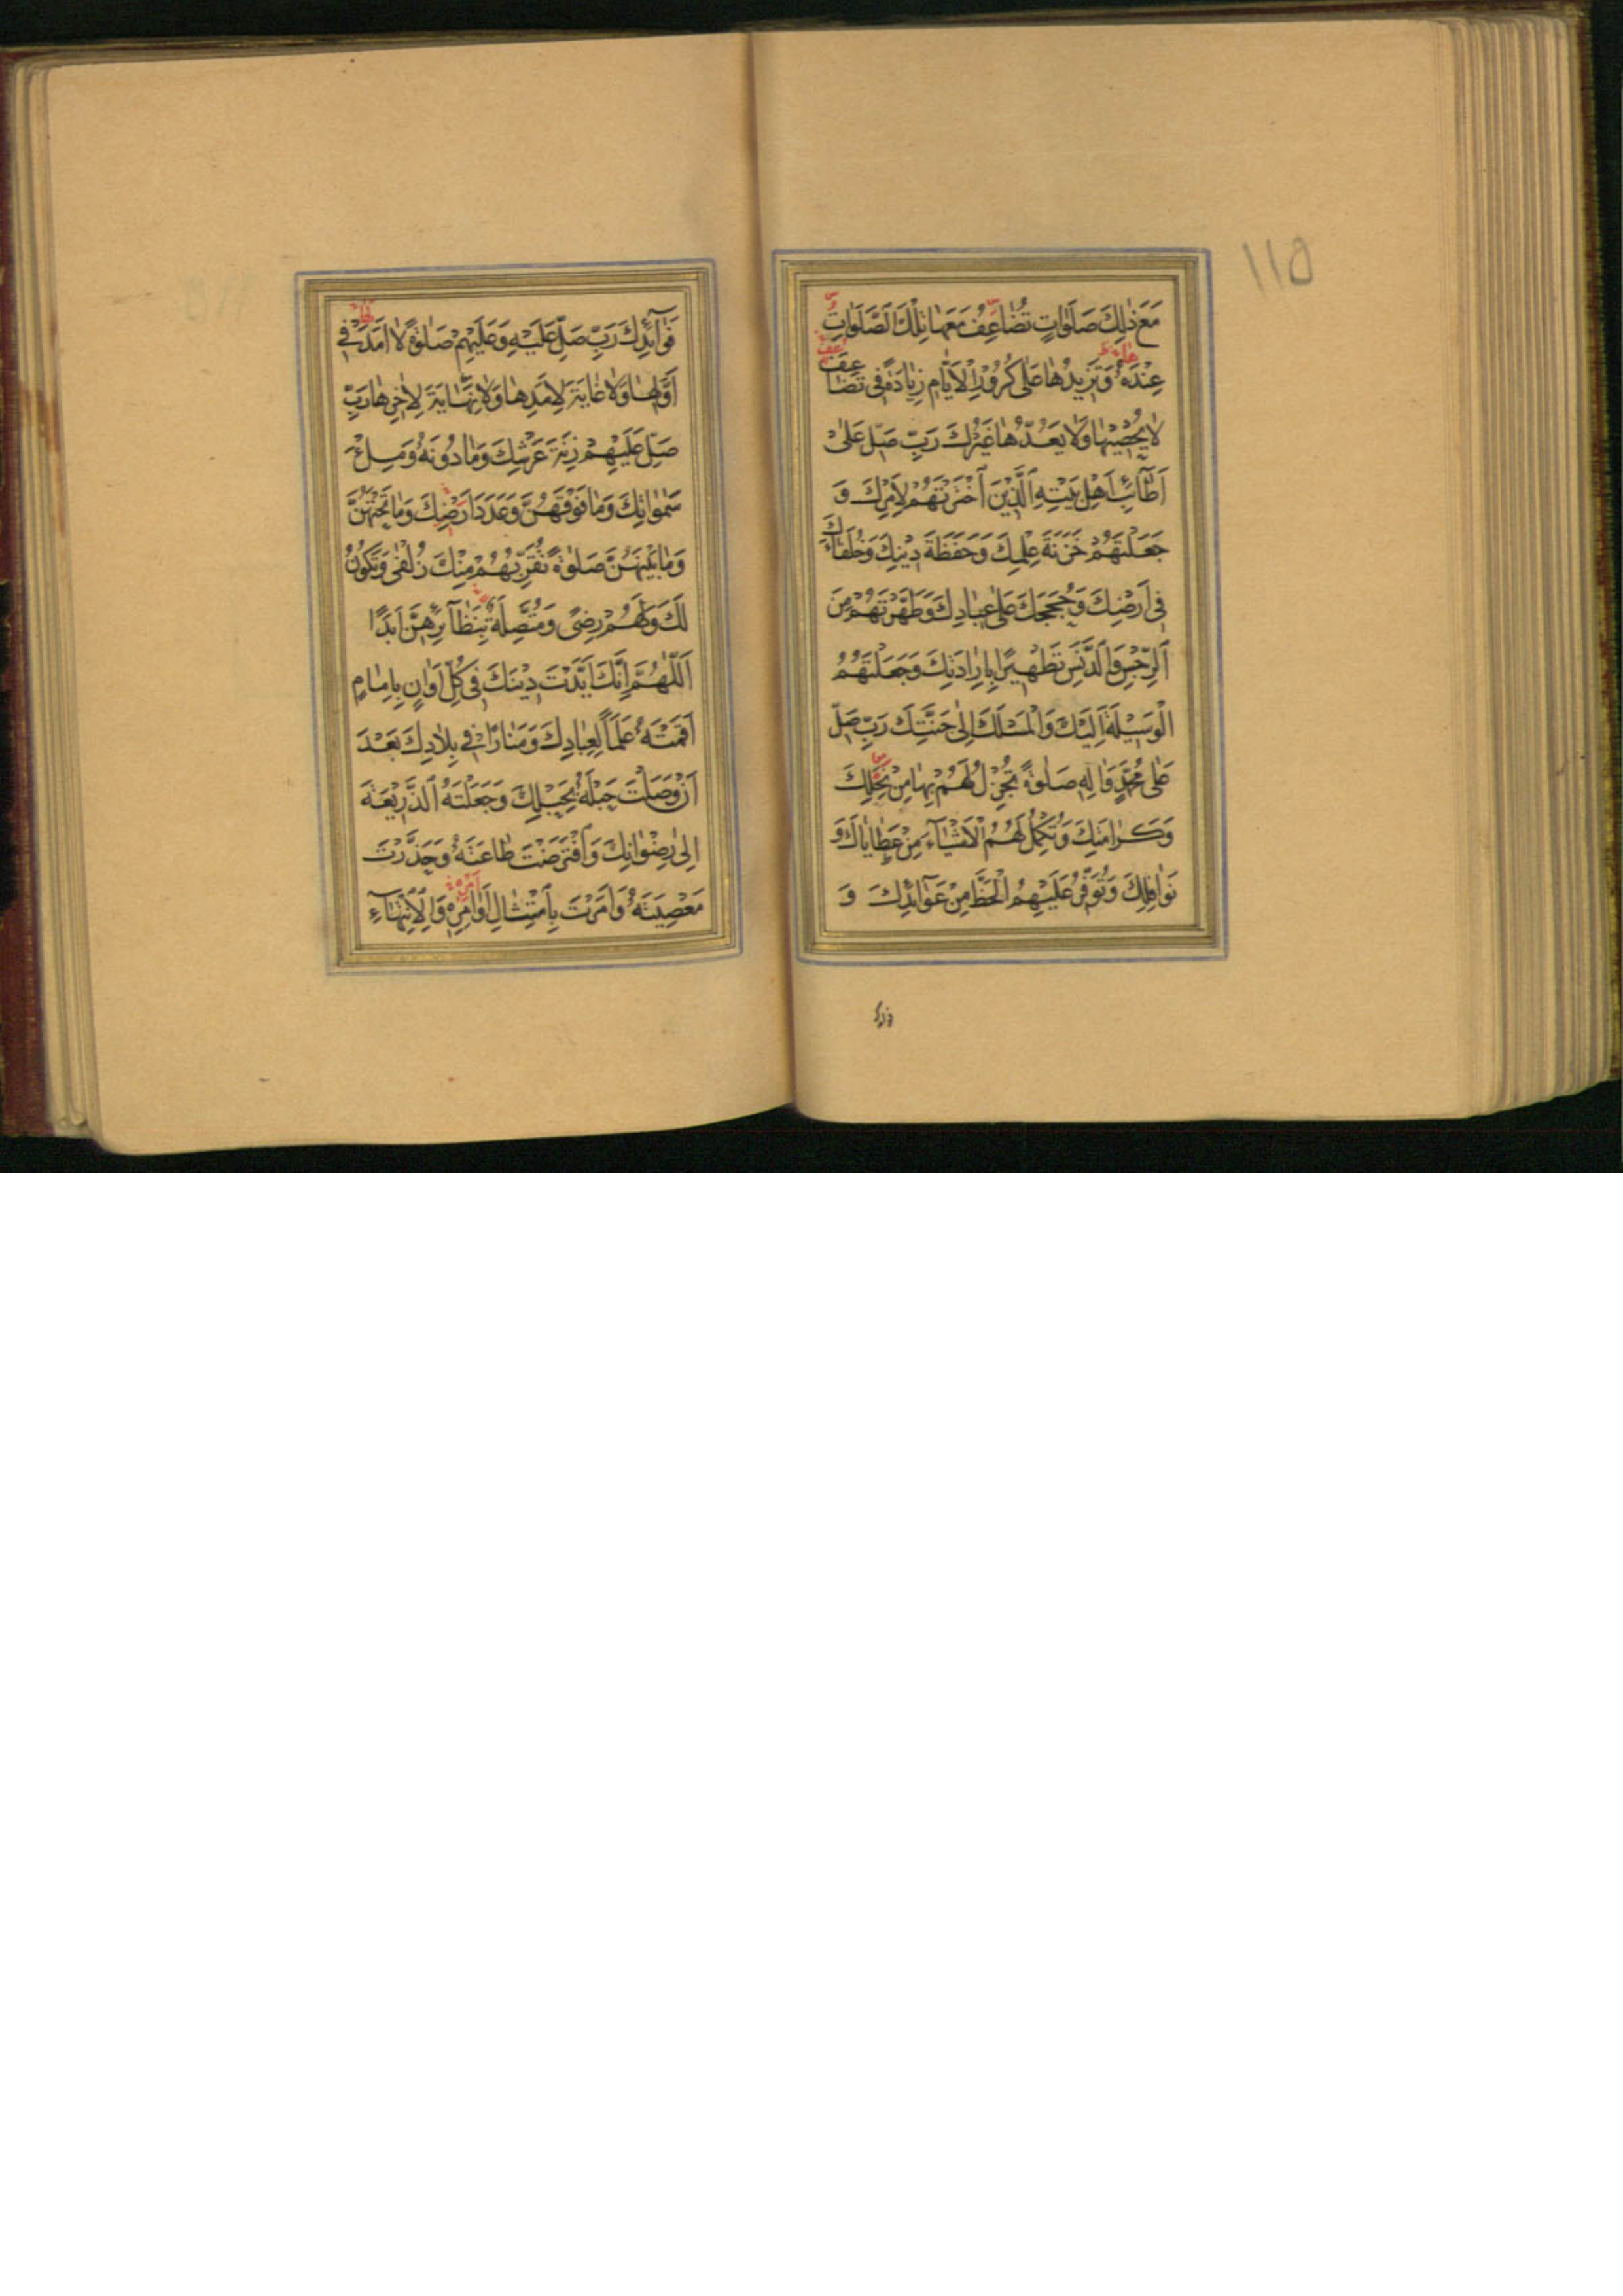 ١١٥
مَعَ ذٰلِكَ صَلَوٰاتٍ تُضٰاعِفُ مَعَهٰا تِلْكَ الصَّلَوٰاتِ
عِنْدَهُ وَتَزِيدُهٰا عَلىٰ كُرُورِ الْاَيّٰامِ زِيٰادَةً فِي تَضٰاعِيفَ
لٰا يُحْصِيهٰا وَلٰا يَعُدُّهٰا غَيْرُكَ رَبِّ صَلِّ عَلىٰ
اَطٰآئِبِ اَهْلِ بَيْتِهِ الَّذِينَ اخْتَرْتَهُمْ لِاَمْرِكَ وَ
جَعَلْتَهُمْ خَزَنَةَ عِلْمِكَ وَحَفَظَةَ دِينِكَ وَخُلَفٰآءَكَ
فِي اَرْضِكَ وَحُجَجَكَ عَلىٰ عِبٰادِكَ وَطَهَّرْتَهُمْ مِنَ
الرِّجْسِ وَالدَّنَسِ تَطْهِيرًا بِاِرٰادَتِكَ وَجَعَلْتَهُمُ
الْوَسِيلَةَ اِلَيْكَ وَالْمَسْلَكَ اِلىٰ جَنَّتِكَ رَبِّ صَلِّ
عَلىٰ مُحَمَّدٍ وَاٰلِهِ صَلٰوةً تُجْزِلُ لَهُمْ بِهٰا مِنْ نِحَلِكَ
وَكَرٰامَتِكَ وَتُكْمِلُ لَهُمُ الْاَشْيٰآءَ مِنْ عَطٰايٰاكَ وَ
نَوٰافِلِكَ وَتُوَفِّرُ عَلَيْهِمُ الْحَظَّ مِنْ عَوٰآئِدِكَ وَ
فَوٰآئِدِكَ رَبِّ صَلِّ عَلَيْهِ وَعَلَيْهِمْ صَلٰوةً لٰا اَمَدَ فِي
اَوَّلِهٰا وَلٰا غٰايَةَ لِاَمَدِهٰا وَلٰا نِهٰايَةَ لِاٰخِرِهٰا رَبِّ
صَلِّ عَلَيْهِمْ زِنَةَ عَرْشِكَ وَمٰا دُونَهُ وَمِلْءَ
سَمٰوٰاتِكَ وَمٰا فَوْقَهُنَّ وَعَدَدَ اَرَضِيكَ وَمٰا تَحْتَهُنَّ
وَمٰا بَيْنَهُنَّ صَلٰوةً تُقَرِّبُهُمْ مِنْكَ زُلْفىٰ وَتَكُونُ
لَكَ وَلَهُمْ رِضًى وَمُتَّصِلَةً بِنَظٰآئِرِهِنَّ اَبَدًا
اَللّٰهُمَّ اِنَّكَ اَيَّدْتَ دِينَكَ فِي كُلِّ اَوٰانٍ بِاِمٰامٍ
اَقَمْتَهُ عَلَمًا لِعِبٰادِكَ وَمَنٰارًا فِي بِلٰادِكَ بَعْدَ
اَنْ وَصَلْتَ حَبْلَهُ بِحَبْلِكَ وَجَعَلْتَهُ الذَّرِيعَةَ
اِلىٰ رِضْوٰانِكَ وَافْتَرَضْتَ طٰاعَتَهُ وَحَذَّرْتَ
مَعْصِيَتَهُ وَاَمَرْتَ بِامْتِثٰالِ اَوٰامِرِهِ وَالْاِنْتِهٰآءِ